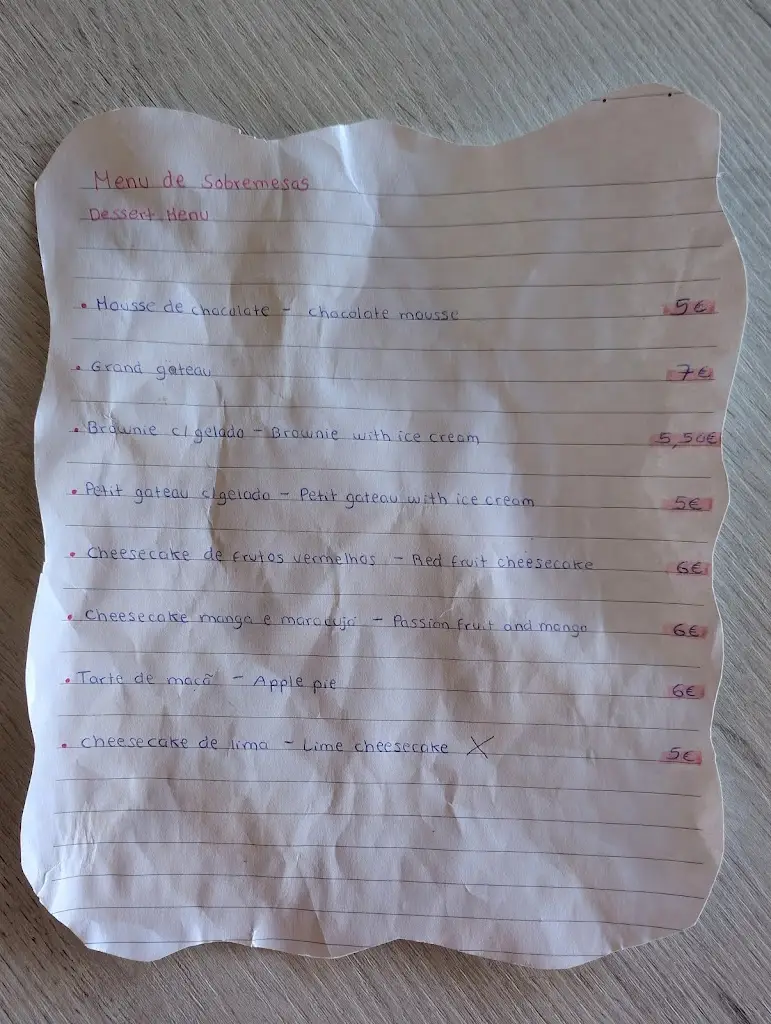 Menu de Sobremesas
Dessert Menu
• Mousse de chocolate - chocolate mousse 5€
• Grand gateau 7€
• Brownie c/ gelado - Brownie with ice cream 5,50€
• Petit gateau c/gelado - Petit gateau with ice cream 5€
• Cheesecake de frutos vermelhos - Red fruit cheesecake 6€
• Cheesecake manga e maracujá - Passion fruit and mango 6€
• Tarte de maçã - Apple pie 6€
• cheesecake de lima - Lime cheesecake X 5€